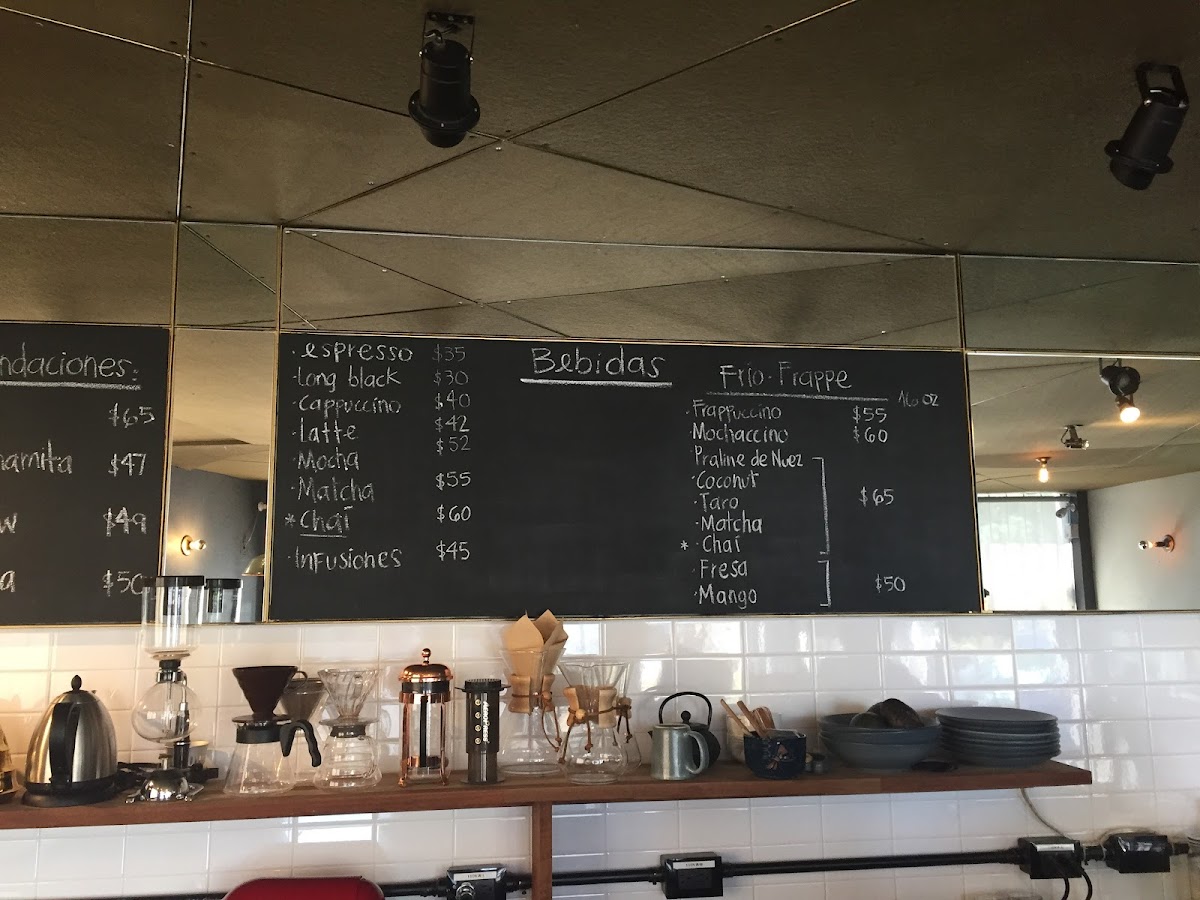 ndaciones:
$65
namita $47
w $49
a $50
Bebidas
· espresso $35
· Long black $30
· Cappuccino $40
· Latte $42
· Mocha $52
· Matcha $55
* Chai $60
· Infusiones $45
Frío · Frappe
16 oz
· Frappuccino $55
· Mochaccino $60
Praline de Nuez
· Coconut
· Taro $65
· Matcha
* · Chai
· Fresa
· Mango $50